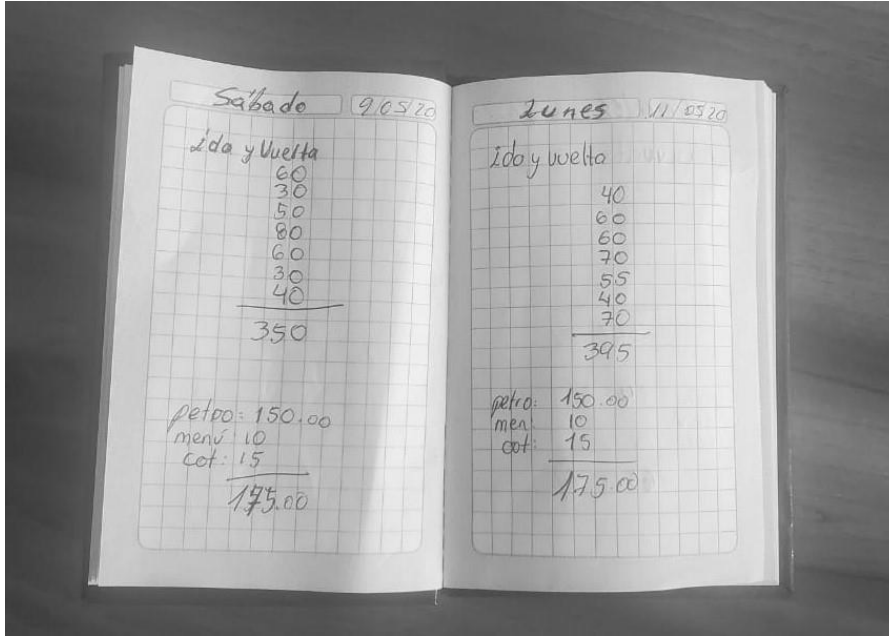 Sábado 9/05/20
ida y Vuelta
60
30
50
80
60
30
40
350
petro: 150.00
menú 10
cot: 15
175.00
Lunes 11/05/20
ida y vuelta
40
60
60
70
55
40
70
395
petro: 150.00
men 10
cot: 15
175.00